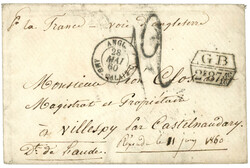 p. la France - voie d'Angleterre
ANGL.
28
MAI
60
AMB. CALAIS
GB
Monsieur
Magistrat et Propriétaire
à Villespy par Castelnaudary
Dt. de l'aude.
1860